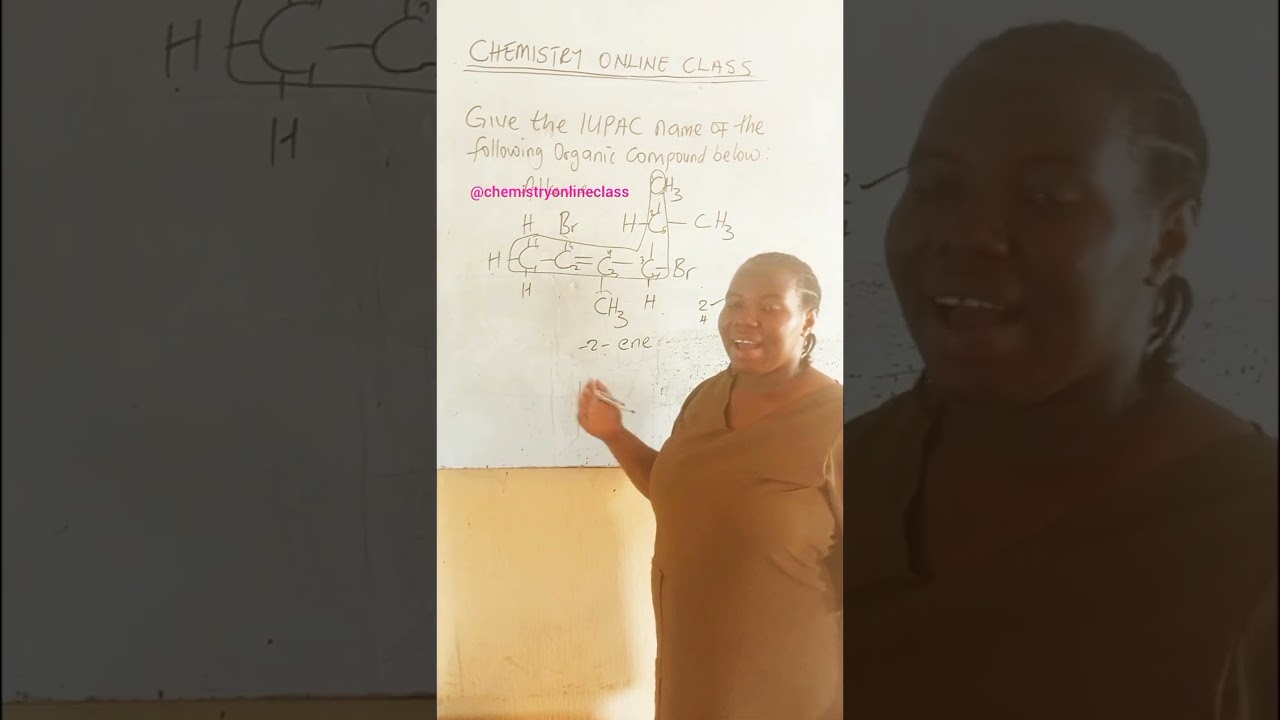 CHEMISTRY ONLINE CLASS
Give the IUPAC name of the
following Organic Compound below:
@chemistryonlineclass
CH3
H Br H-C-CH3
H-C-C=C-C-Br
H CH3 H
2
4
-2-ene
H C C
H